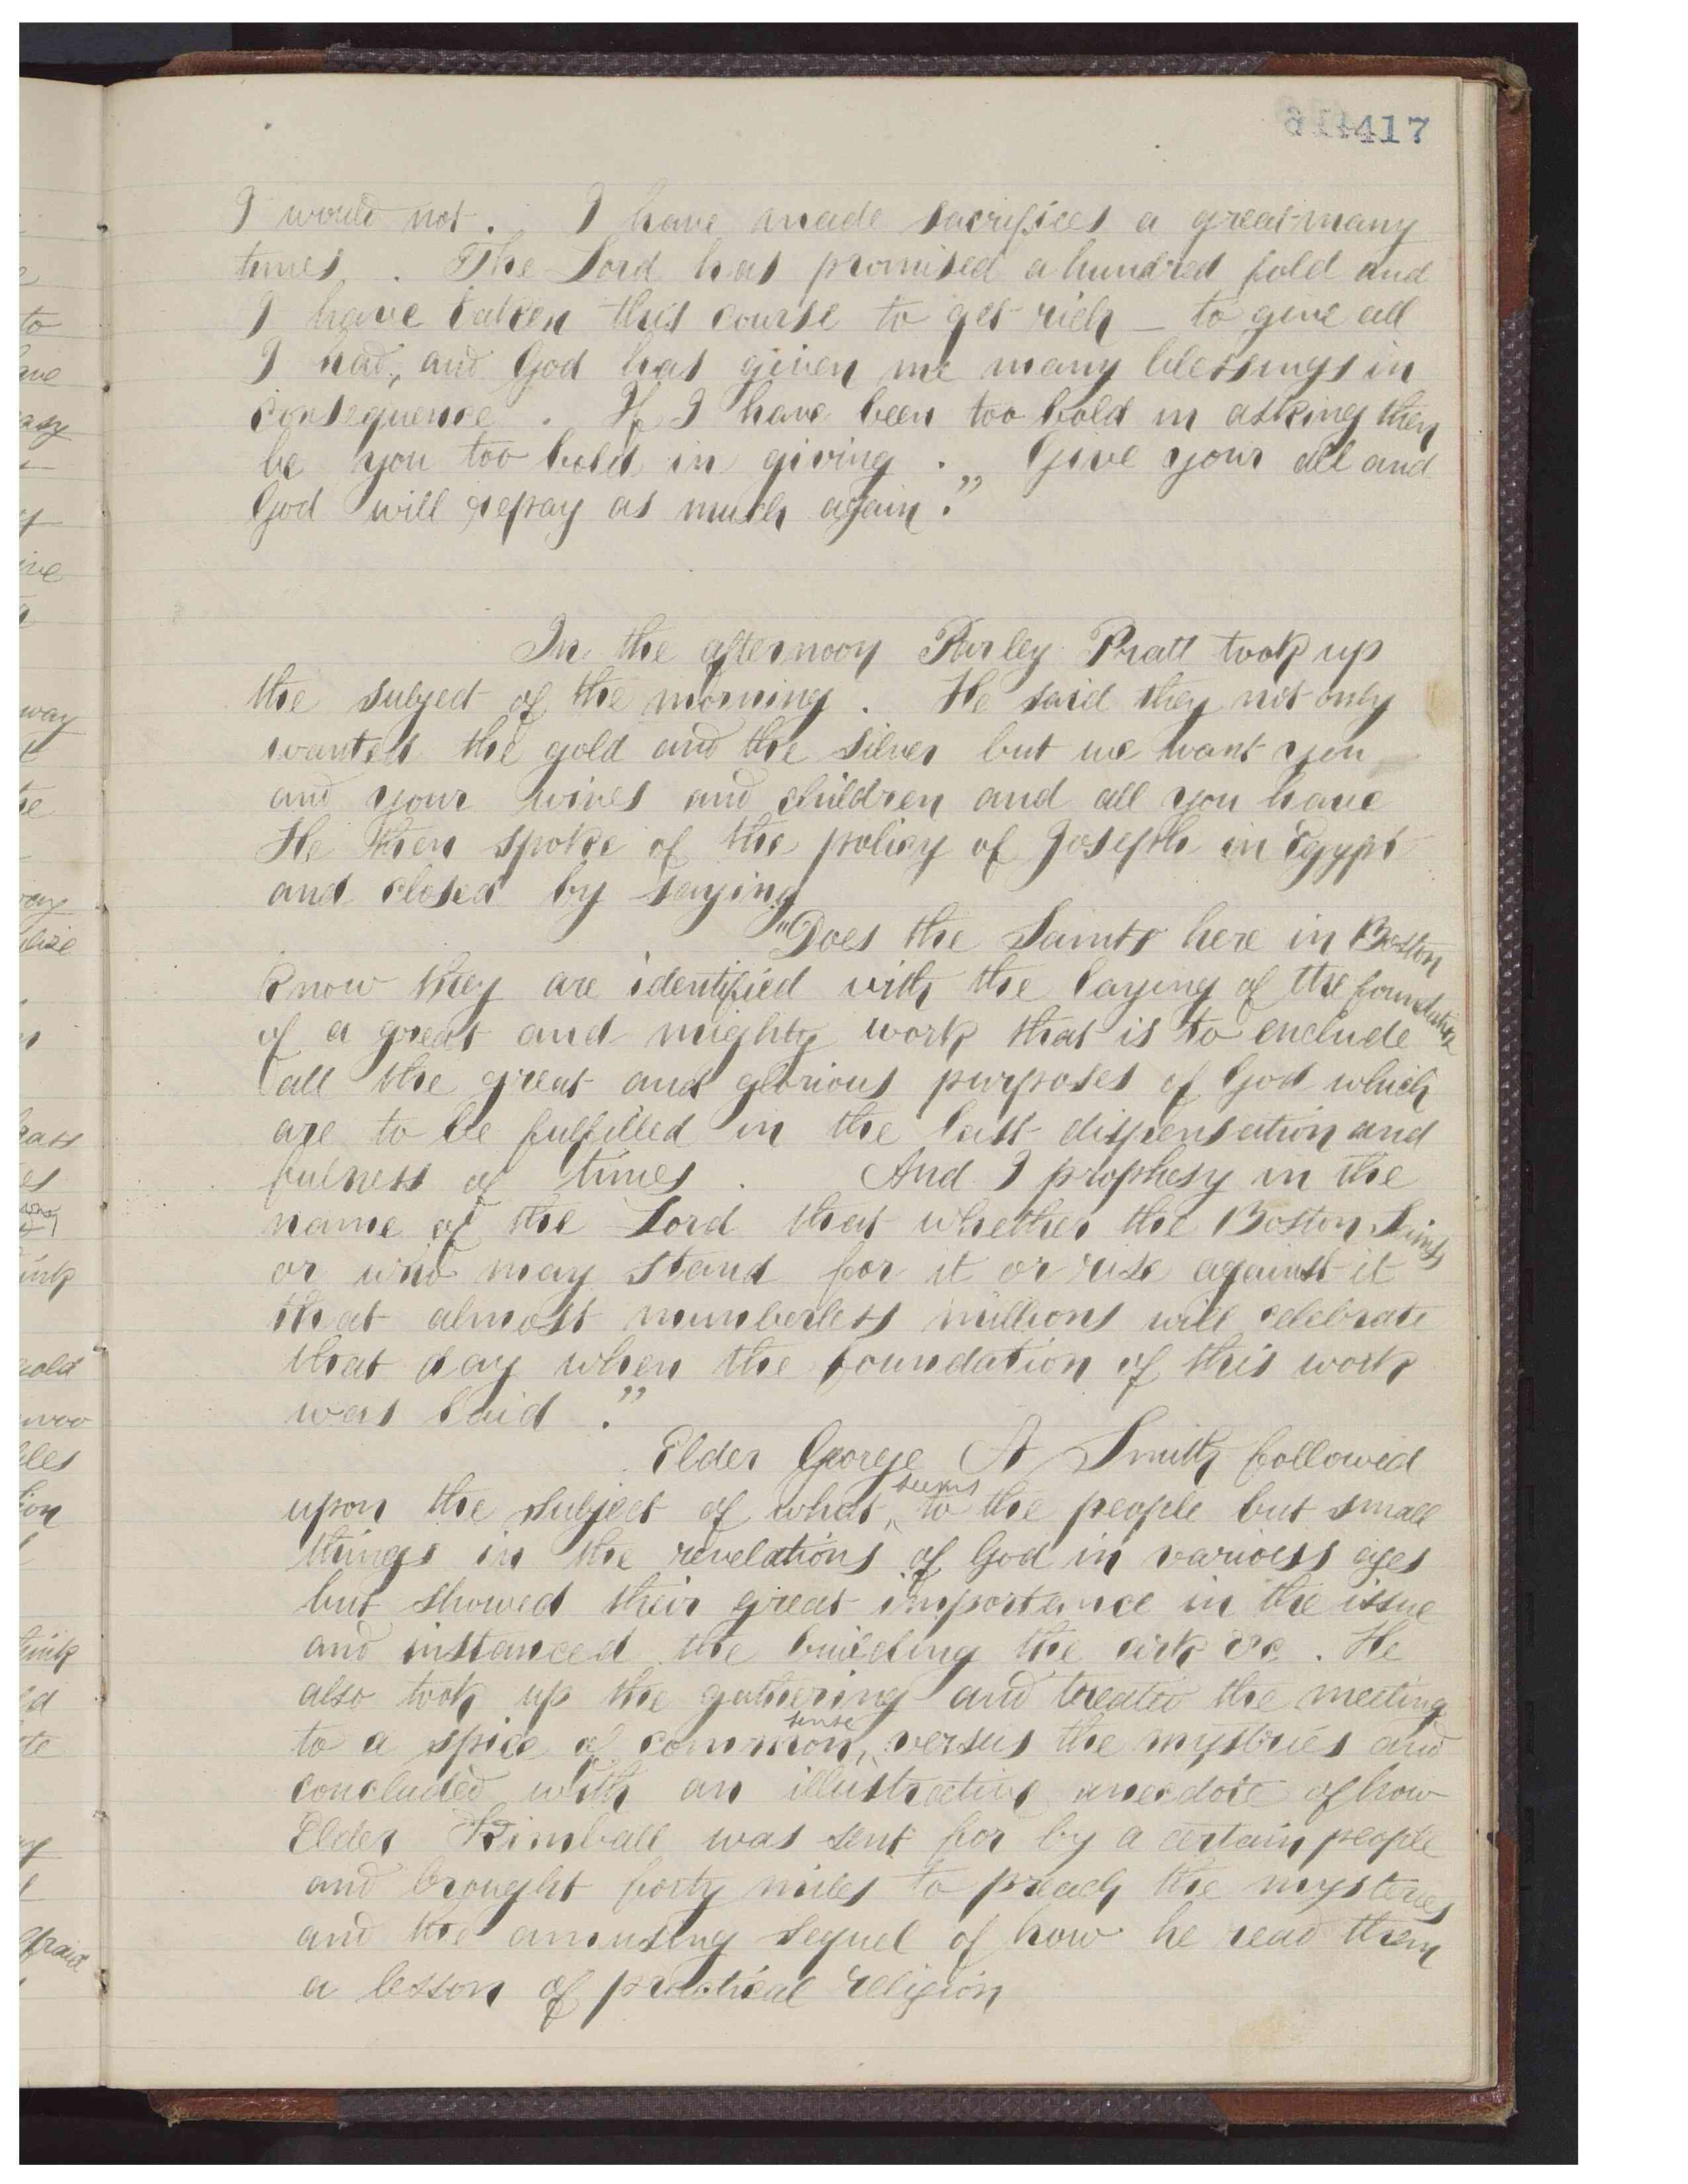 417
I would not. I have made sacrifices a great many
times. The Lord has promised a hundred fold and
I have taken this course to get rich – to give all
I had, and God has given me many blessings in
consequence. If I have been too bold in asking then
be you too bold in giving. Give your all and
God will repay as much again."
In the afternoon Parley Pratt took up
the subject of the morning. He said they not only
wanted the gold and the silver but we want you
and your wives and children and all you have
He then spoke of the policy of Joseph in Egypt
and closed by saying
"Does the Saints here in Boston
know they are identified with the laying of the foundation
of a great and mighty work that is to enclude
all the great and glorious purposes of God which
are to be fulfilled in the last dispensation and
fulness of times. And I prophesy in the
name of the Lord that whether the Boston Saints
or who may stand for it or rise against it
that almost numberless millions will celebrate
that day when the foundation of this work
was laid."
Elder George A Smith followed
upon the subject of what seems to the people but small
things in the revelations of God in various ages
but showed their great importance in the issue
and instanced the building the ark &c. He
also took up the gathering and treated the meeting
to a spice of common sense versus the mystries and
concluded with an illustrative anecdote of how
Elder Kimball was sent for by a certain people
and brought forty miles to preach the mysteries
and the amusing sequel of how he read them
a lesson of practical religion